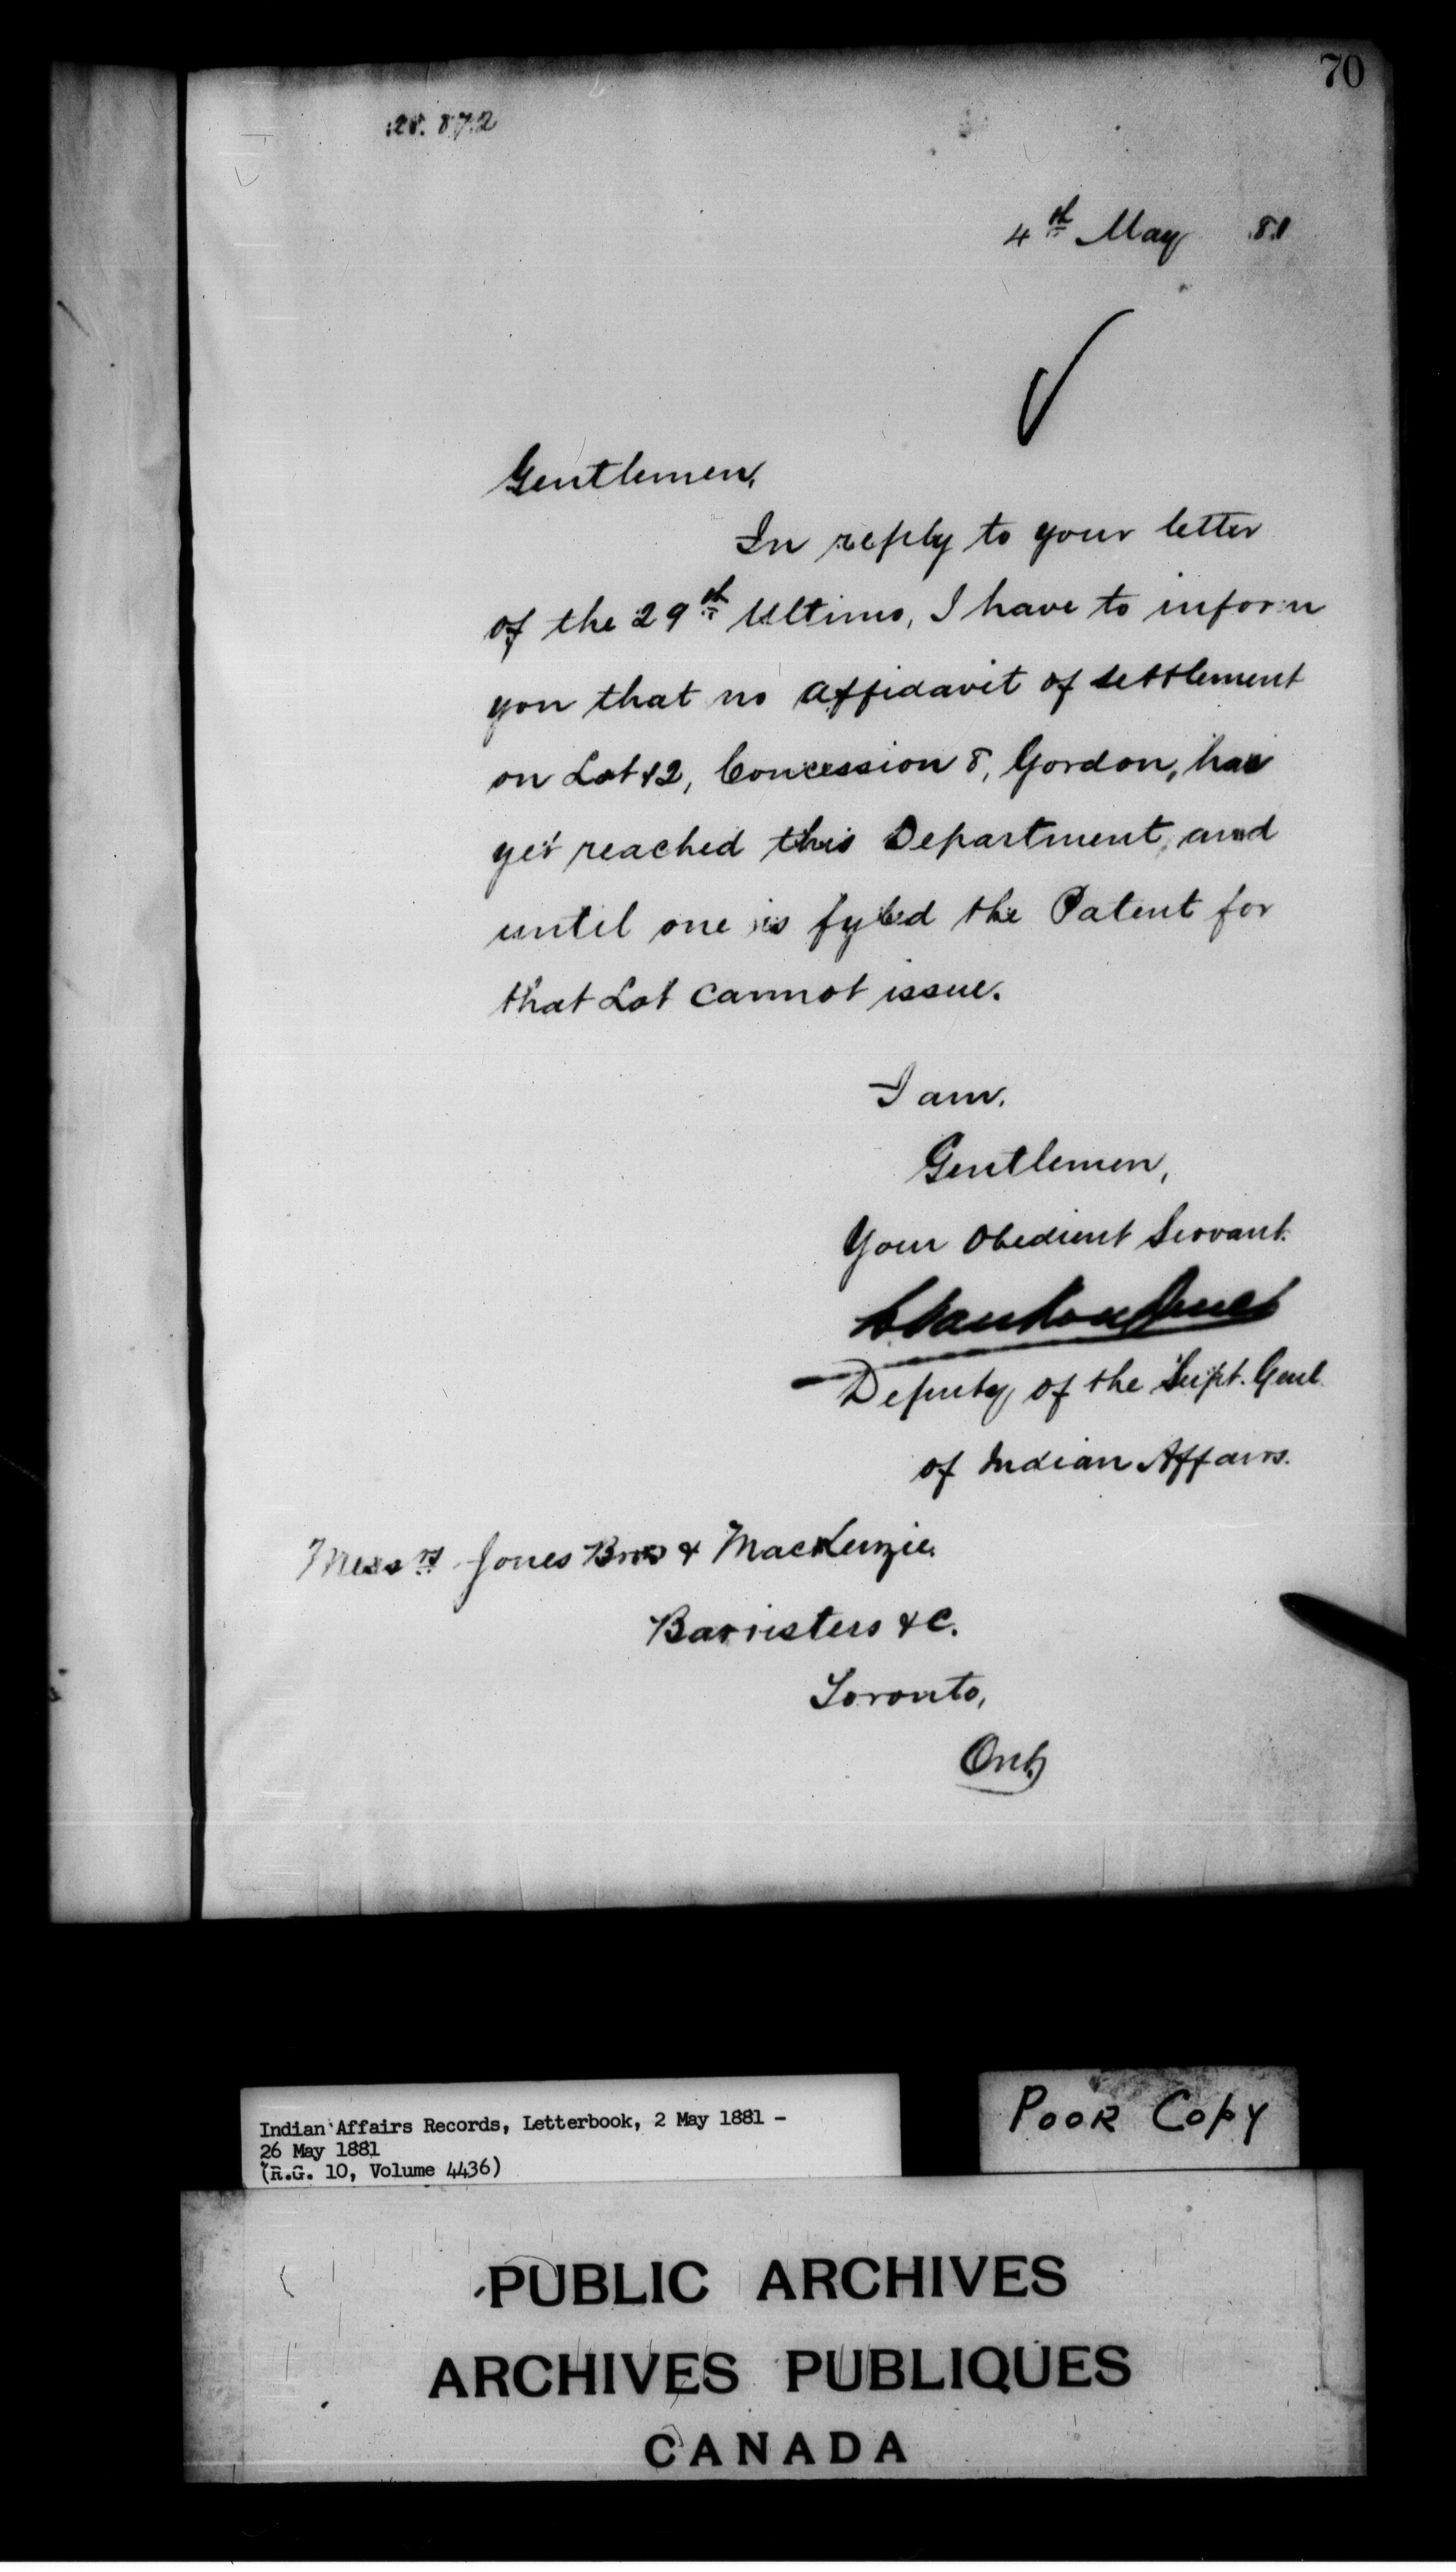 70
28.872
4th May 81
Gentlemen,
In reply to your letter
of the 29th Ultimo, I have to inform
you that no affidavit of settlement
on Lot 12, Concession 8, Gordon, has
yet reached this Department, and
until one is fyled the Patent for
that Lot cannot issue.
I am,
Gentlemen,
Your Obedient Servant.
Deputy of the Supt. Genl
of Indian Affairs.
Messrs Jones Bros & MacKenzie.
Barristers &c.
Toronto,
Ont.
Indian Affairs Records, Letterbook, 2 May 1881 -
26 May 1881
(R.G. 10, Volume 4436)
POOR COPY
PUBLIC ARCHIVES
ARCHIVES PUBLIQUES
CANADA